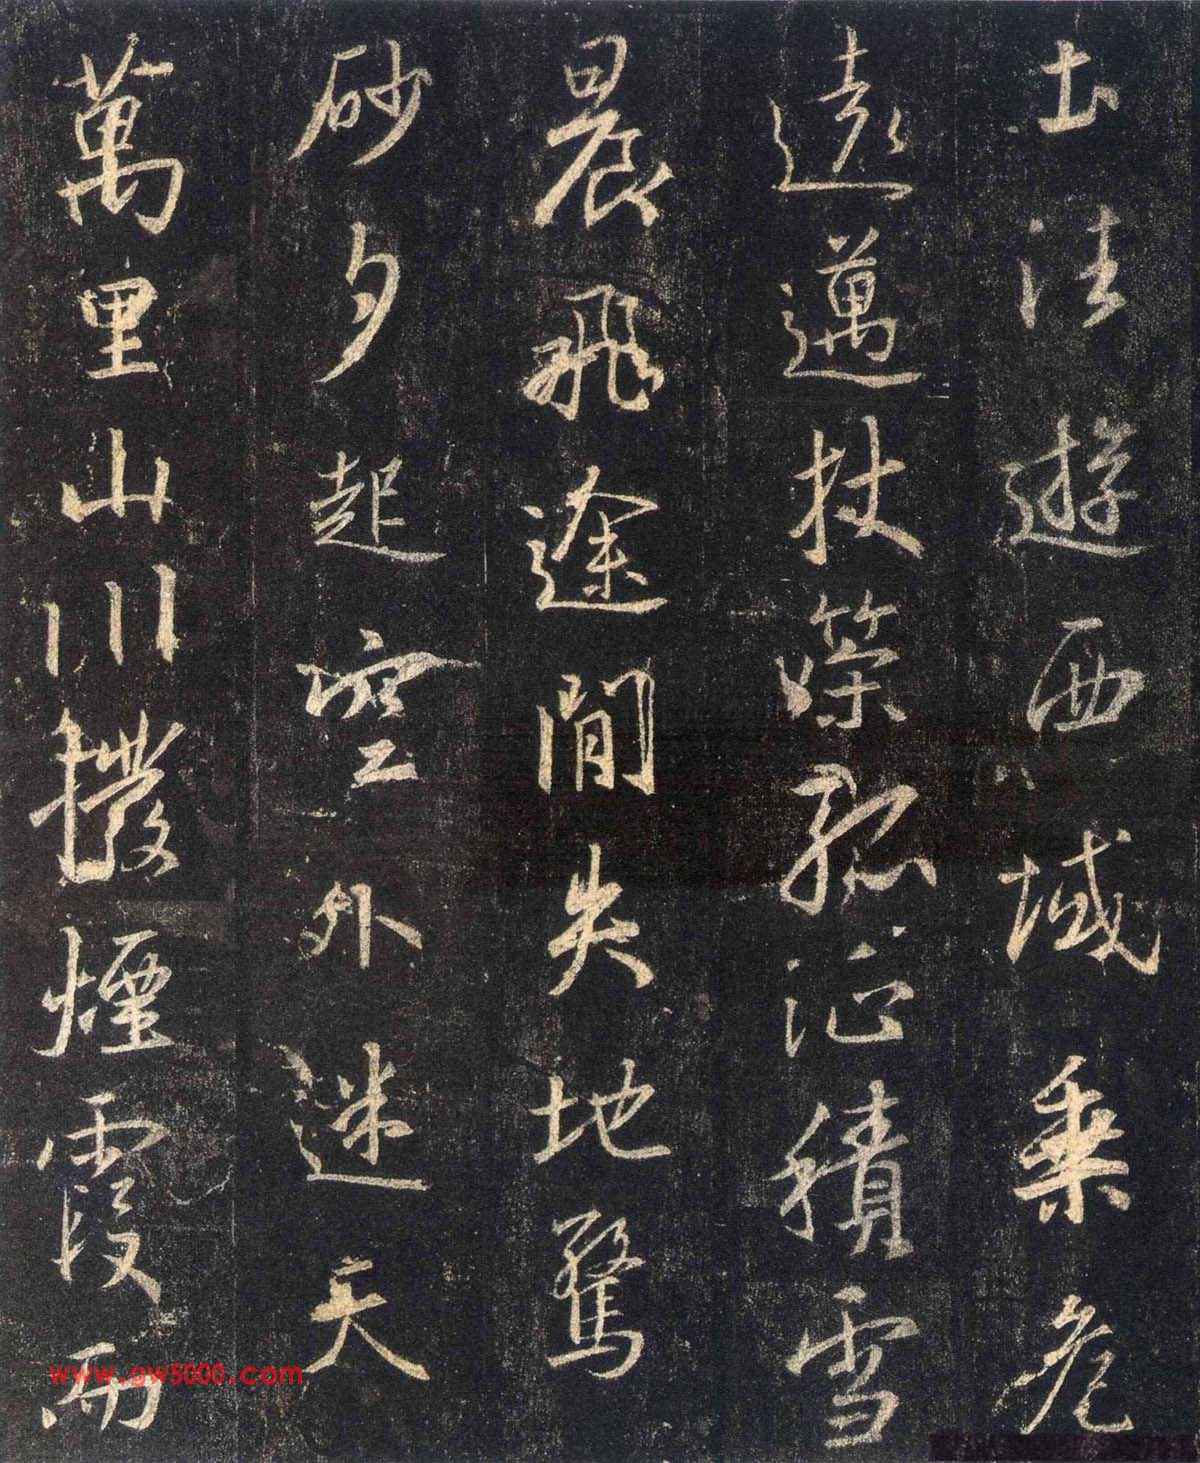 土往遊西域乗危
遠邁杖策孤征積雪
晨飛途間失地驚
砂夕起空外迷天
萬里山川撥煙霞而
www.gw5000.com